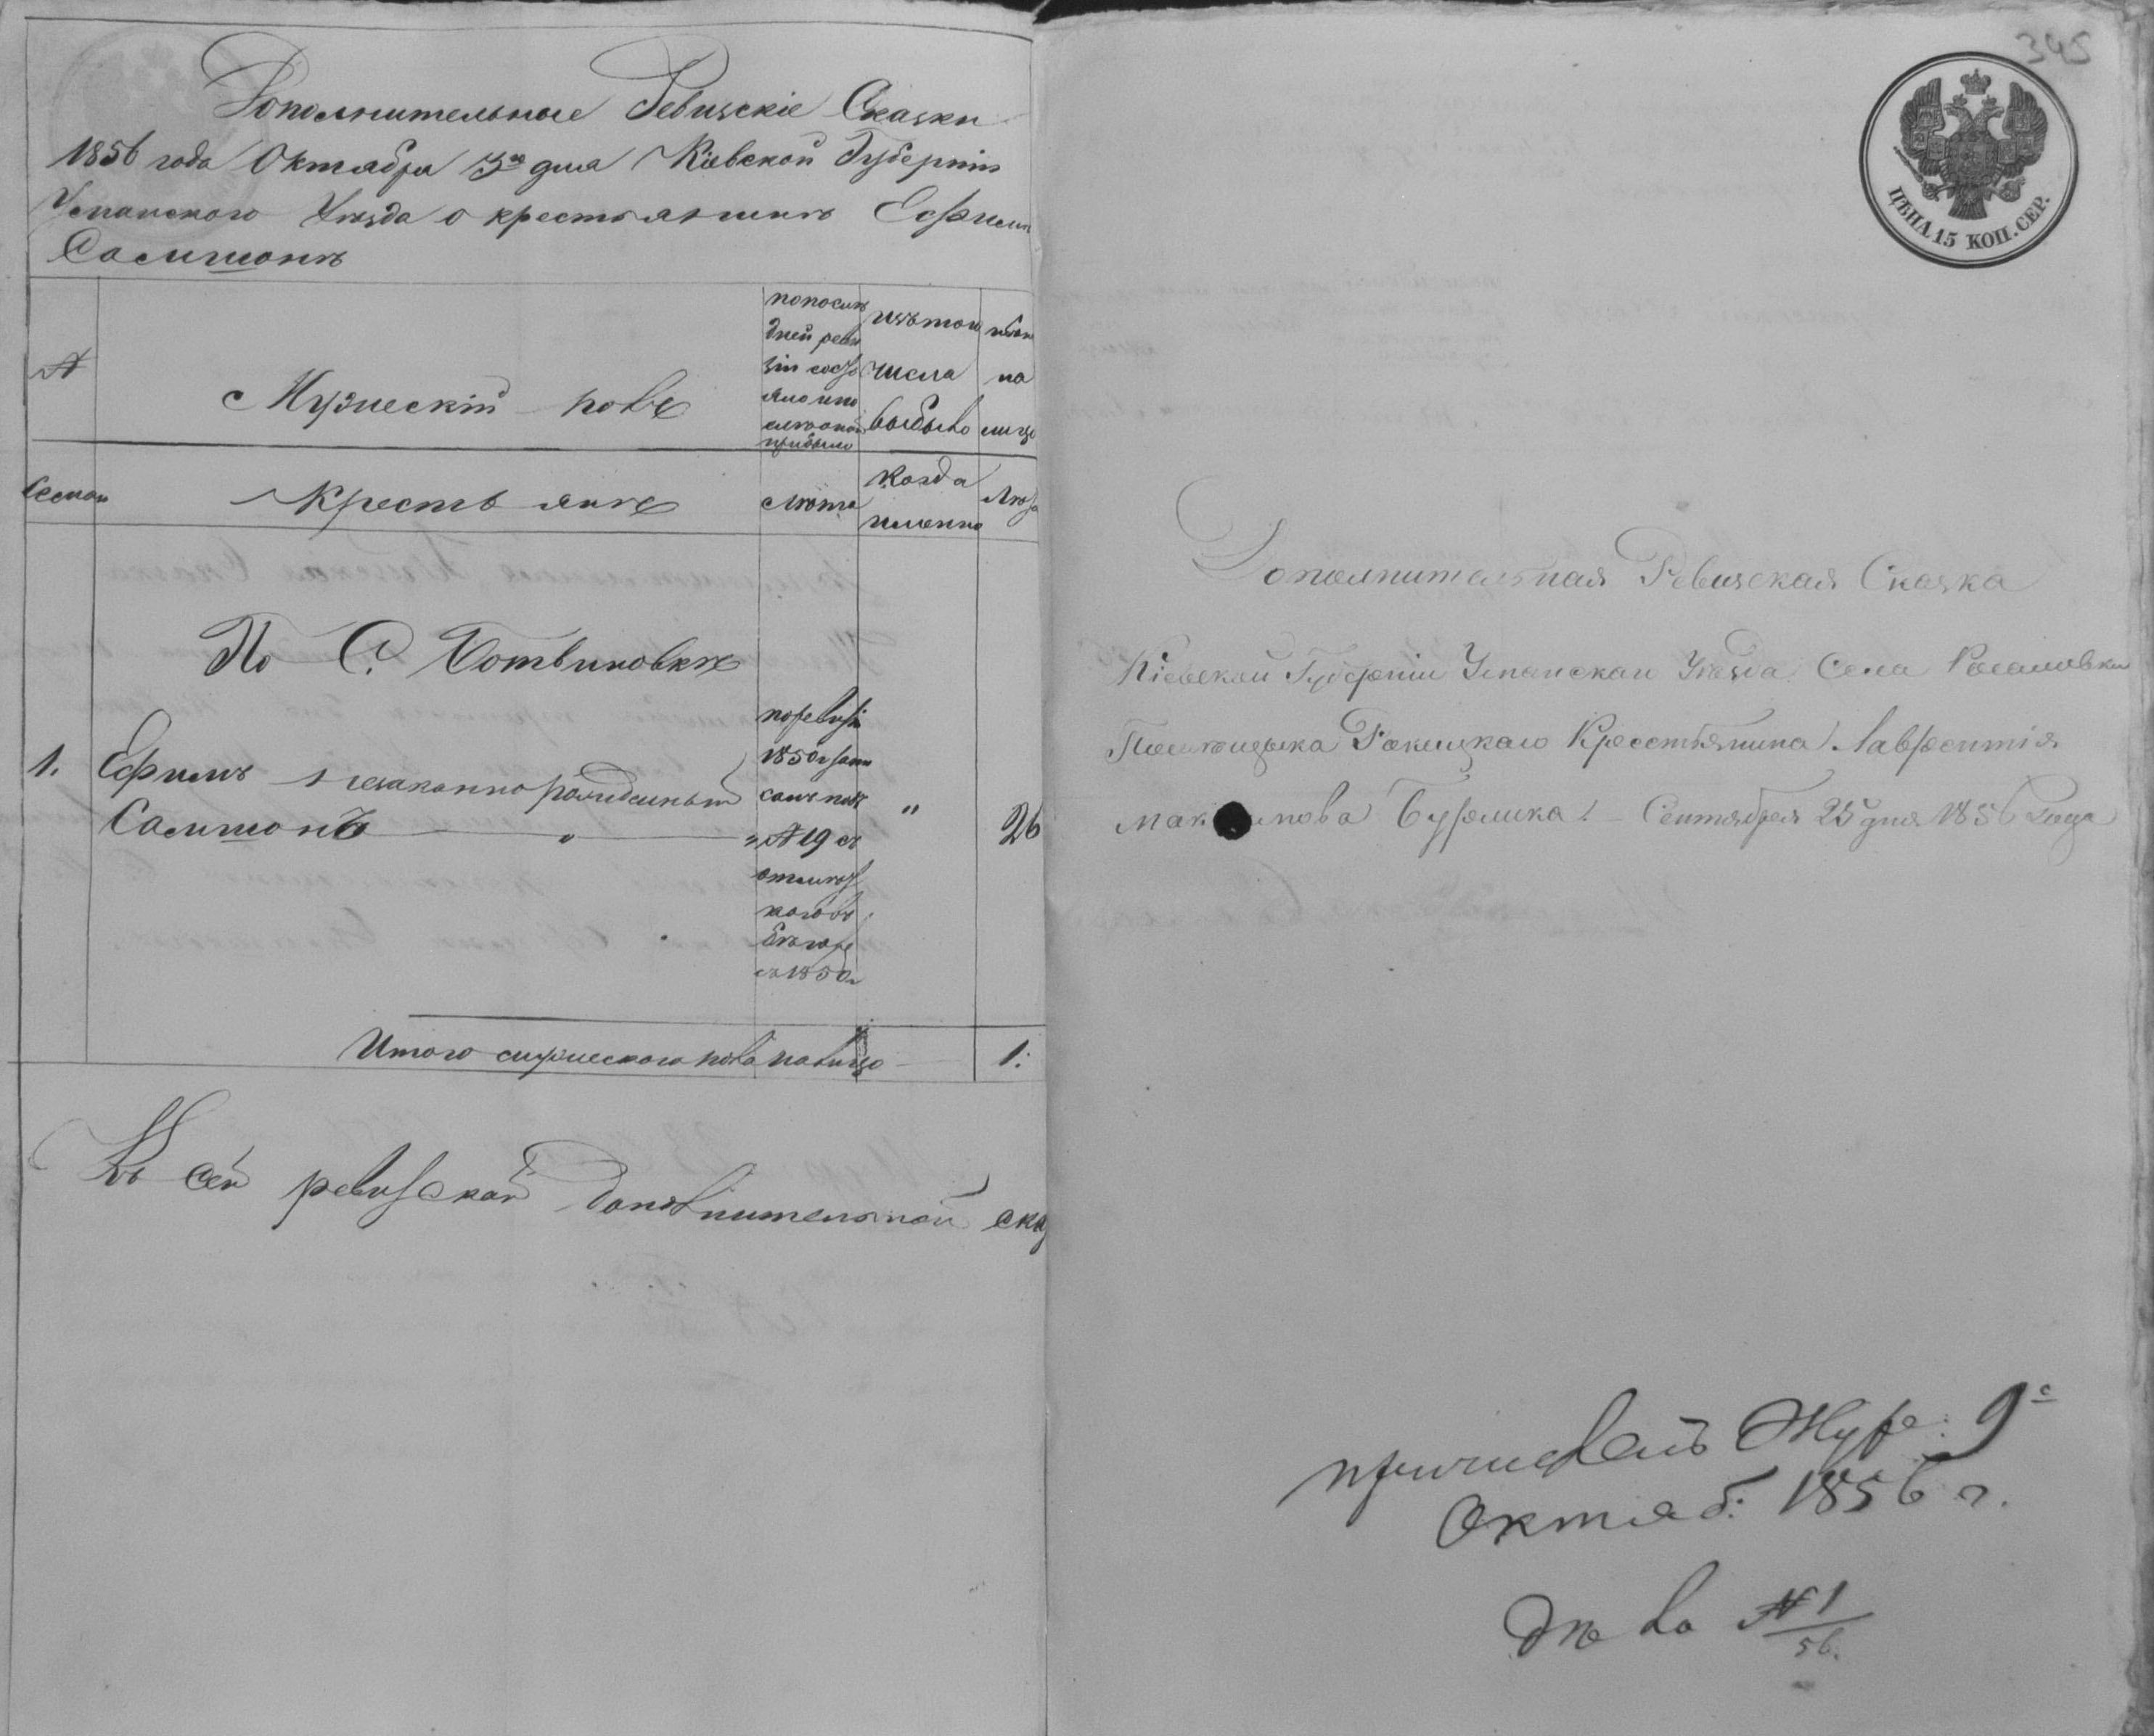 Дополнительные Ревизскіе Сказки
1856 года Октября 3го дня Кіевской Губерніи
Уманского Уезда о крестьянинѣ Ефимѣ
Салитонѣ
№
Мужескій полъ
по послѣ
дней реви
зіи состо
яло или
послѣ оной
прибыло
изъ того
числа
выбыло
нынѣ
на
лицо
Семьи
Крестьяне
Лѣта
Когда
именно
Лѣта
По С. Ботвиновкѣ
1. Ефимъ незаконнорожденный
Салитонъ
по ревизіи
1850 г записанъ
№ 19
въ
бѣгахъ
съ 1850 г
"
26
Итого мужеского пола на лицо 1.
Къ сей ревизской дополнительной сказ
345
ЦѢНА 15 КОП. СЕР.
Дополнительная Ревизская Сказка
Кіевской Губерніи Уманскаго Уѣзда Села
Помѣщика Крестьянина Лаврентія
Максимова Бурлика. Сентября 25 дня 1856 Года
причисленъ Жур: 9е
Октяб: 1856 г.
дѣло №1
56.